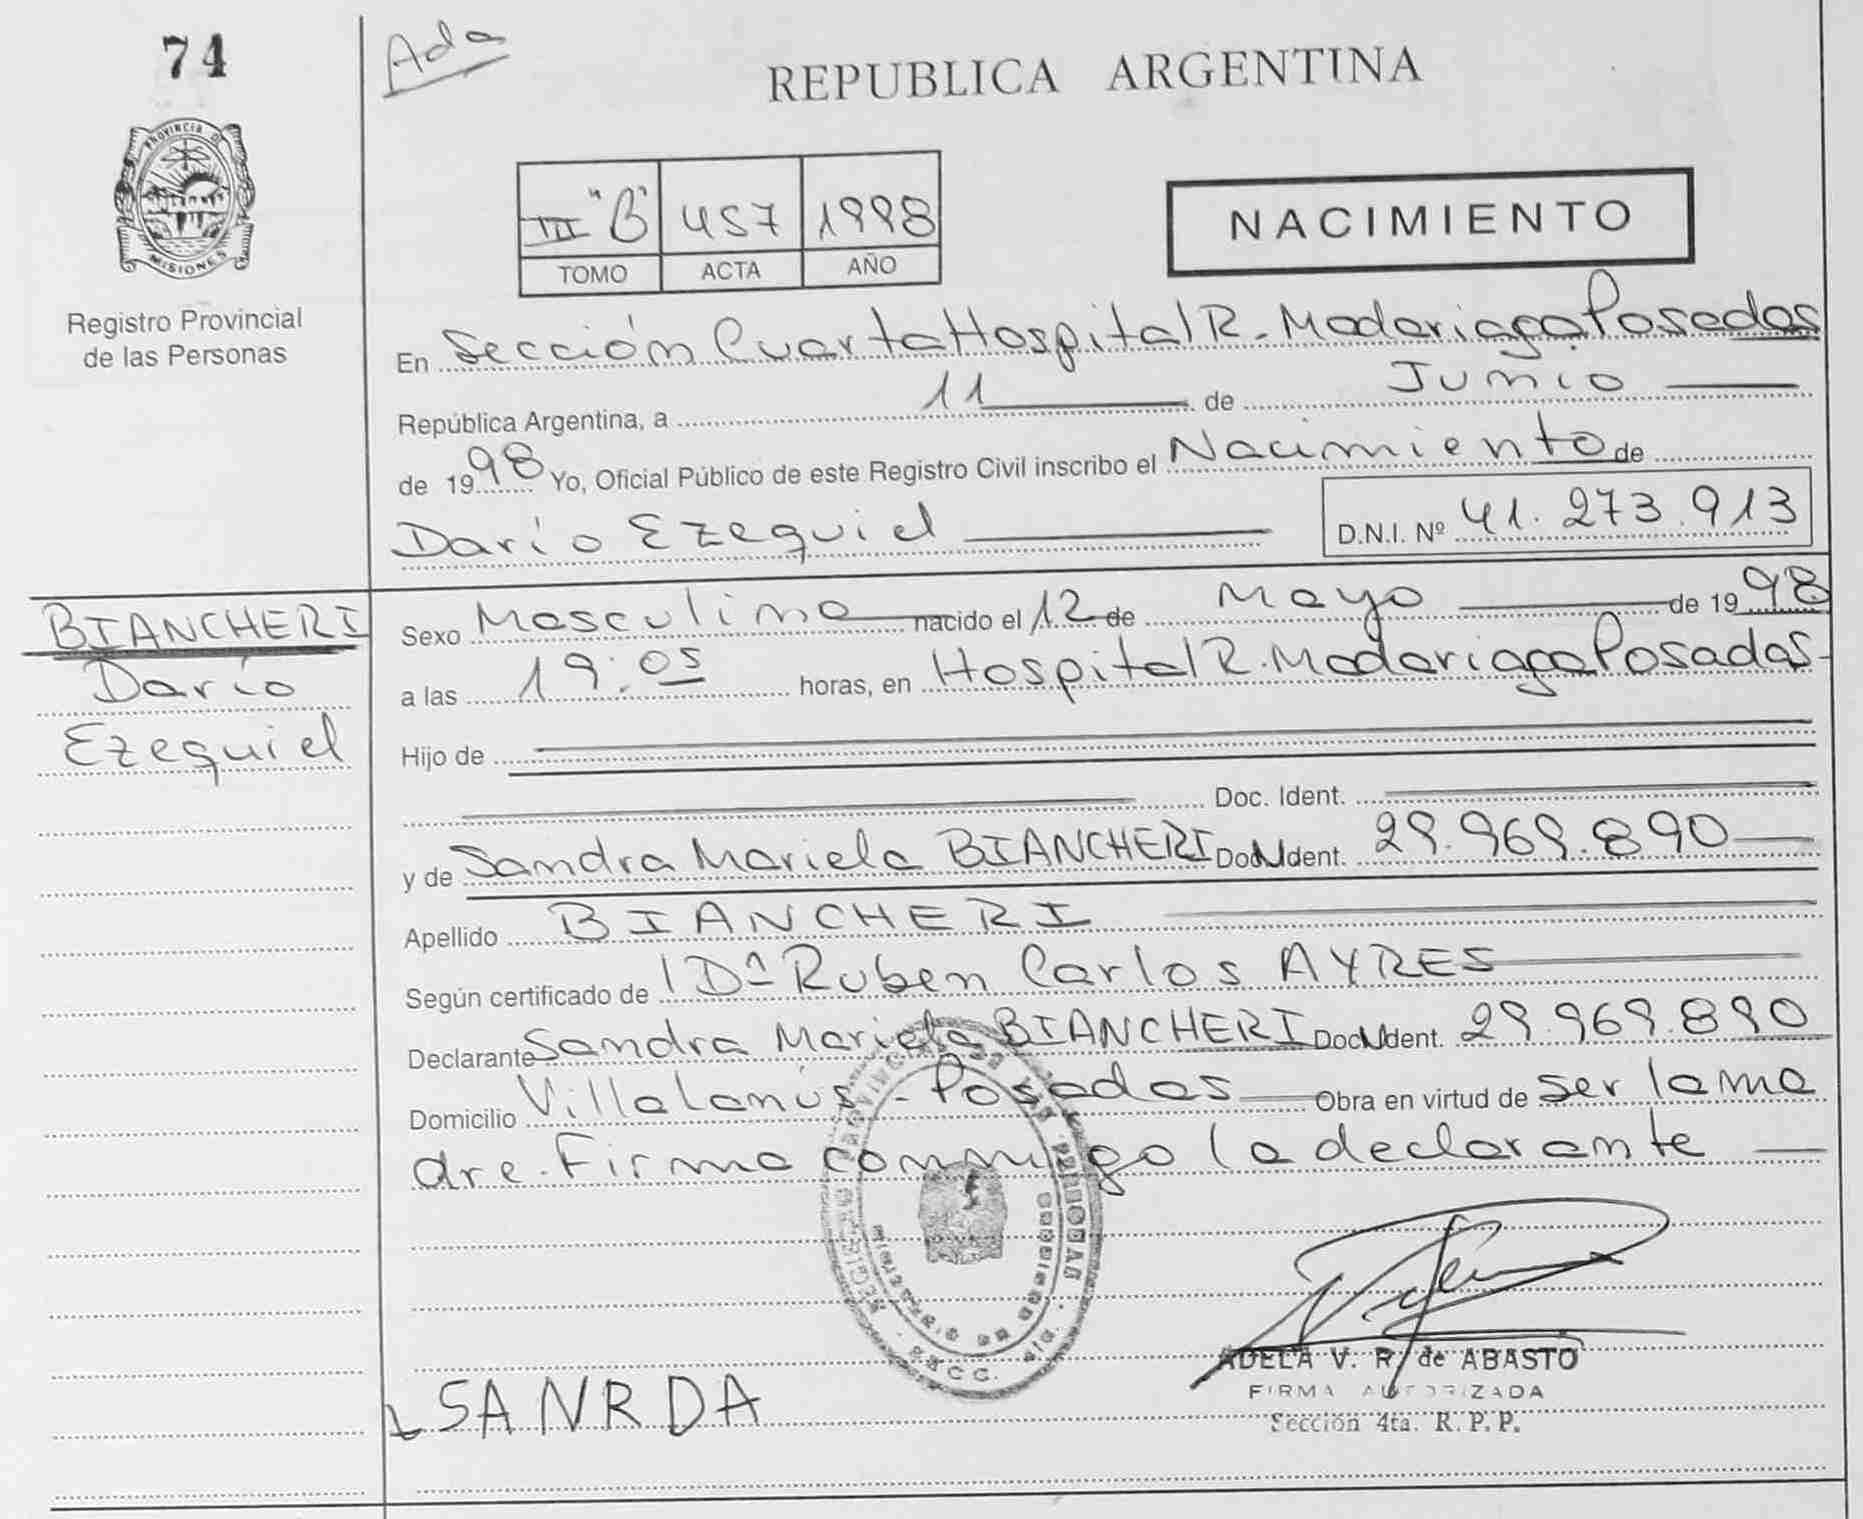 74
Ada
REPUBLICA ARGENTINA
PROVINCIA DE
MISIONES
Registro Provincial
de las Personas
III "B" 457 1998
TOMO ACTA AÑO
NACIMIENTO
En Sección Cuarta Hospital R. Madariaga Posadas
República Argentina, a 11 de Junio
de 1998 Yo, Oficial Público de este Registro Civil inscribo el Nacimiento de
Darío Ezequiel D.N.I. Nº 41.273.913
BIANCHERI
Darío
Ezequiel
Sexo Masculino nacido el 12 de Mayo de 1998
a las 19:05 horas, en Hospital R. Madariaga Posadas-
Hijo de
Doc. Ident.
y de Sandra Mariela BIANCHERI Doc. Ident. 29.969.890
Apellido BIANCHERI
Según certificado de Dr Ruben Carlos AYRES
Declarante Sandra Mariela BIANCHERI Doc. Ident. 29.969.890
Domicilio Villa Lanús - Posadas Obra en virtud de ser la ma
dre. Firma conmigo la declarante
SANRDA
ADELA V. R. de ABASTO
FIRMA AUTORIZADA
Sección 4ta. R. P. P.